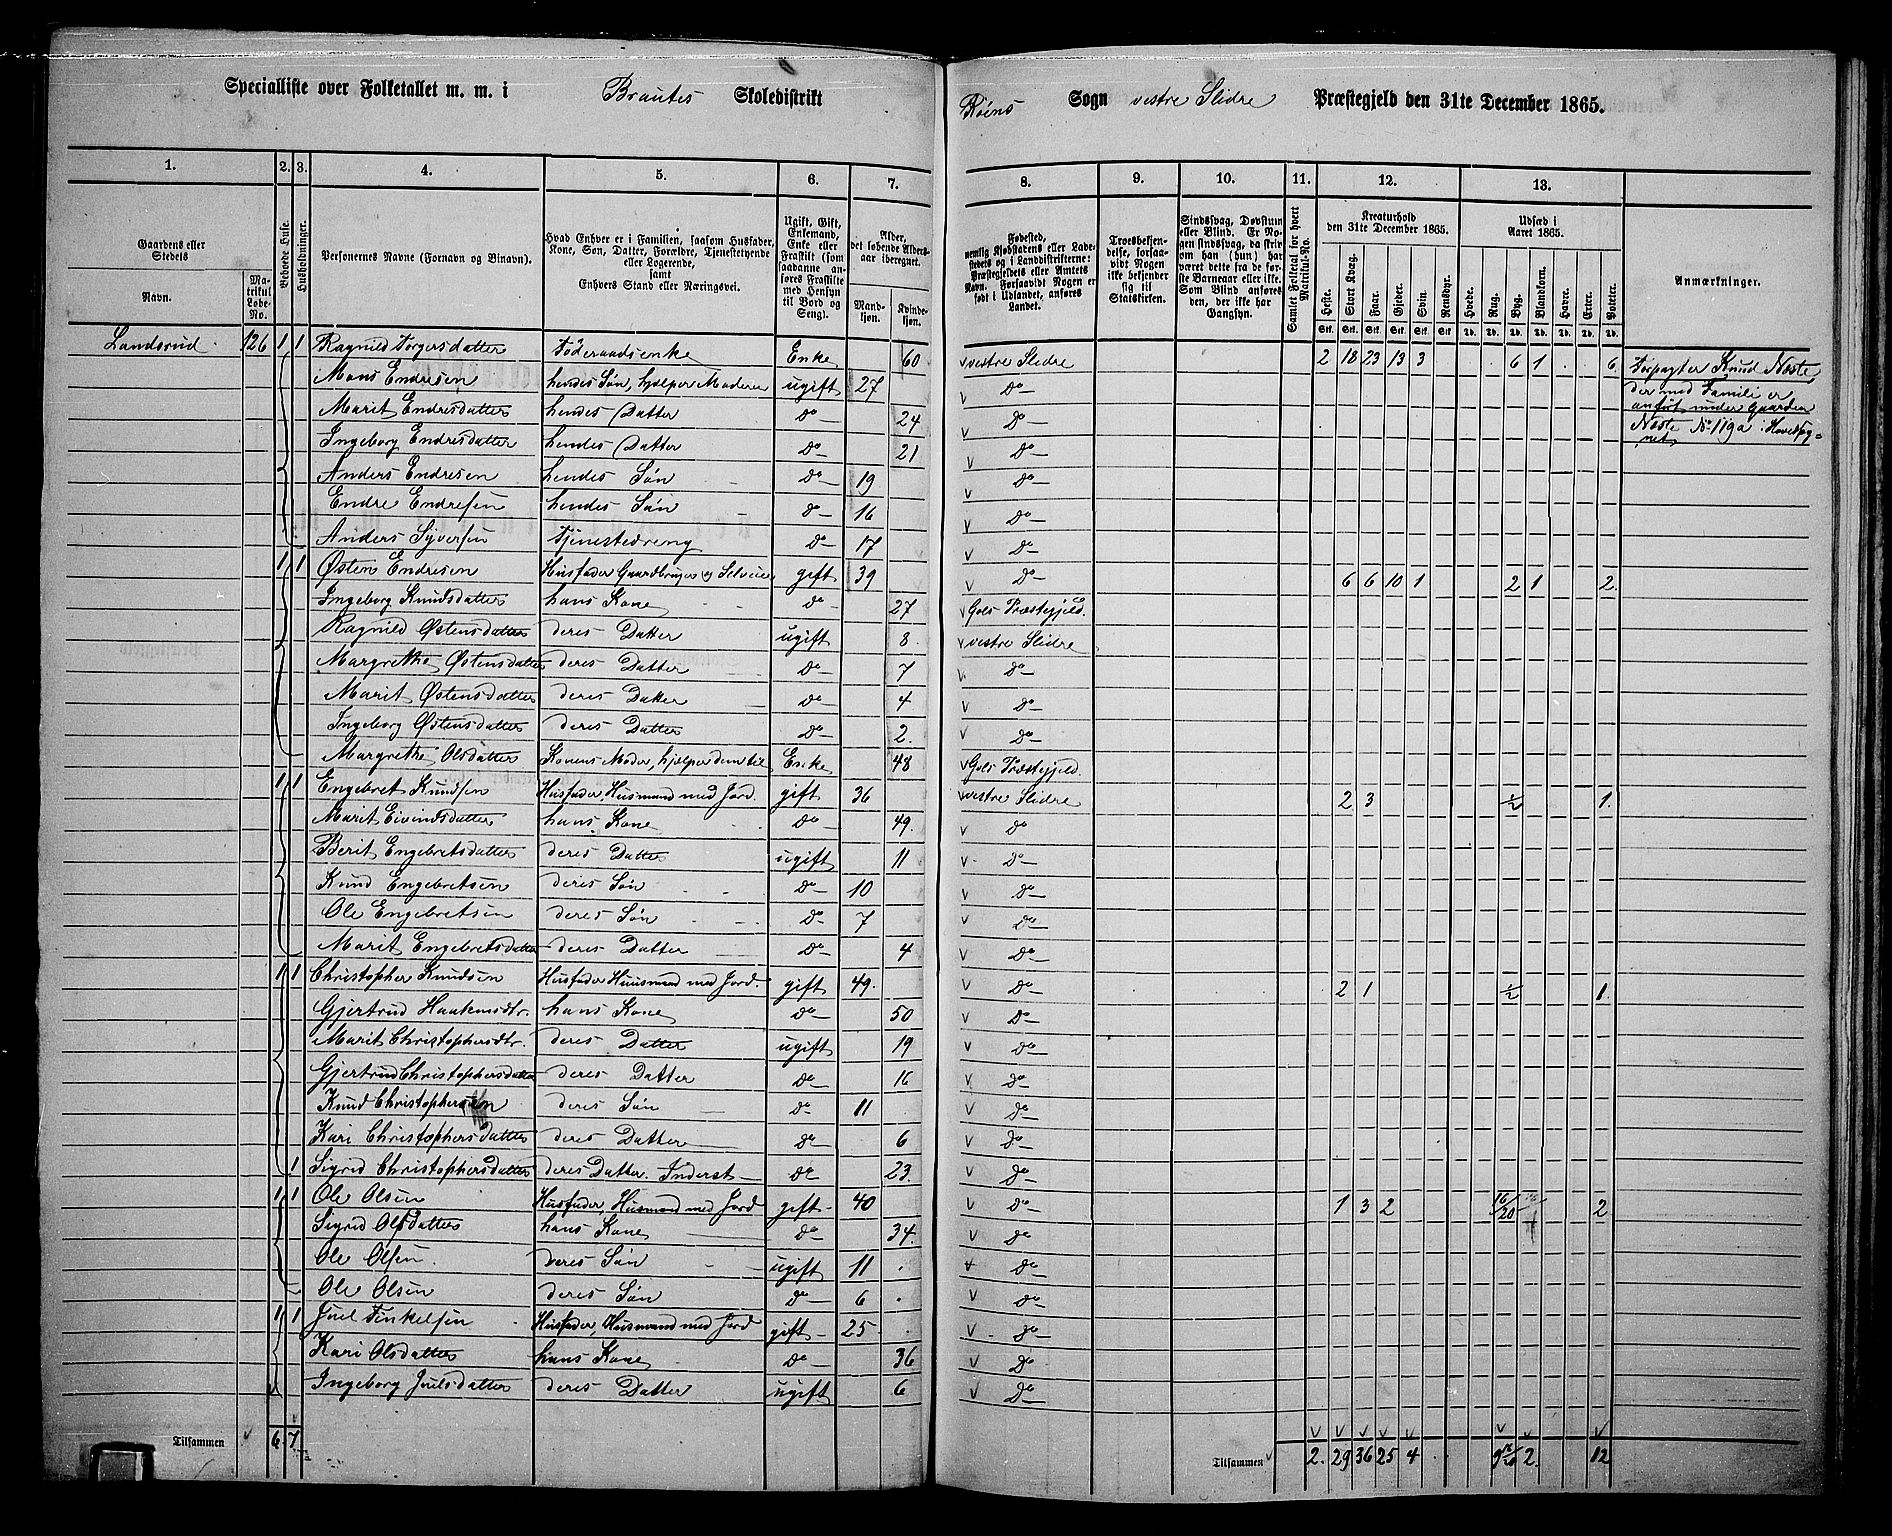 Specialliste over Folketallet m. m. i Brautes Skoledistrikt Røens Sogn vestre Slidre Præstegjeld den 31te December 1865.
1. 2. 3. 4. 5. 6. 7. 8. 9. 10. 11. 12. 13.
Gaardens eller Stedets
Navn.
Matrikul Løbe-No.
Beboede Huse.
Husholdninger.
Personernes Navne (Fornavn og Binavn).
Hvad Enhver er i Familien, saasom Husfader, Kone, Søn, Datter, Forældre, Tjenestetyende eller Logerende, samt Enhvers Stand eller Næringsvei.
Ugift, Gift, Enkemand, Enke eller Fraskilt (som saadanne anføres Fraskilte med Hensyn til Bord og Seng).
Alder, det løbende Aldersaar iberegnet.
Mandkjøn. Kvindekjøn.
Fødested, nemlig Kjøbstadens eller Ladestedets og i Landdistrikterne: Præstegjeldets eller Amtets Navn. Forsaavidt Nogen er født i Udlandet, anføres Landet.
Troesbekjendelse, forsaavidt Nogen ikke bekjender sig til Statskirken.
Sindssvag, Døvstum eller Blind. Er Nogen sindssvag, da skrives om han (hun) har været dette fra de første Barneaar eller ikke. Som Blind anføres den, der ikke har Gangsyn.
Samlet Folketal for hvert Matrikul-No.
Kreaturhold den 31te December 1865.
Heste. Stort Kvæg. Faar. Gjeder. Svin. Rensdyr.
Udsæd i Aaret 1865.
Hvede. Rug. Byg. Blandkorn. Havre. Erter. Poteter.
Stk. Stk. Stk. Stk. Stk. Stk. Td. Td. Td. Td. Td. Td. Td.
Anmærkninger.
Landsrud 126 1 1 Ragnild Torgersdatter Føderaadsenke Enke 60 vestre Slidre 2 18 23 13 3 6 1 6 Forpagter Knud Neste,
Mons Endresen hendes Søn, hjælper Moderen ugift 27 Do der med Familie er
Marit Endresdatter hendes Datter Do 24 Do anført under Gaarden
Ingeborg Endresdatter hendes Datter Do 21 Do Neste No 119a i Hovedsognet
Anders Endresen hendes Søn Do 19 Do
Endre Endresen hendes Søn Do 16 Do
Anders Syversen Tjenestedreng Do 17 Do
1 1 Østen Endresen Husfader Gaardbruger og Selveier gift 39 Do 6 6 10 1 2 1 2
Ingeborg Knudsdatter hans Kone Do 27 Gols Præstegjeld
Ragnild Østensdatter deres Datter ugift 8 vestre Slidre
Margrethe Østensdatter deres Datter Do 7 Do
Marit Østensdatter deres Datter Do 4 Do
Ingeborg Østensdatter deres Datter Do 2 Do
Margrethe Olsdatter Konens Moder, hjælper dem til Enke 48 Gols Præstegjeld
1 1 Engebret Knudsen Husfader, Husmand med Jord gift 36 vestre Slidre 2 3 1/2 1
Marit Eivindsdatter hans Kone Do 49 Do
Berit Engebretsdatter deres Datter ugift 11 Do
Knud Engebretsen deres Søn Do 10 Do
Ole Engebretsen deres Søn Do 7 Do
Marit Engebretsdatter deres Datter Do 4 Do
1 1 Christopher Knudsen Husfader Huusmand med Jord gift 49 Do 2 1 1/2 1
Gjertrud Haakensdtr. hans Kone Do 50 Do
Marit Christophersdtr. deres Datter ugift 19 Do
Gjertrud Christophersdatter deres Datter Do 16 Do
Knud Christophersen deres Søn Do 11 Do
Kari Christophersdatter deres Datter Do 6 Do
1 Sigrid Christophersdatter deres Datter. Inderst Do 23 Do
1 1 Ole Olsen Husfader, Husmand med Jord gift 40 Do 1 3 2 16/20 2
Sigrid Olsdatter hans Kone Do 34 Do
Ole Olsen deres Søn ugift 11 Do
Ole Olsen deres Søn Do 6 Do
1 1 Juel Finkelsen Husfader, Husmand med Jord gift 25 Do
Kari Olsdatter hans Kone Do 36 Do
Ingeborg Juelsdatter deres Datter ugift 6 Do
Tilsammen 6 7 Tilsammen 2 29 36 25 4 2 12